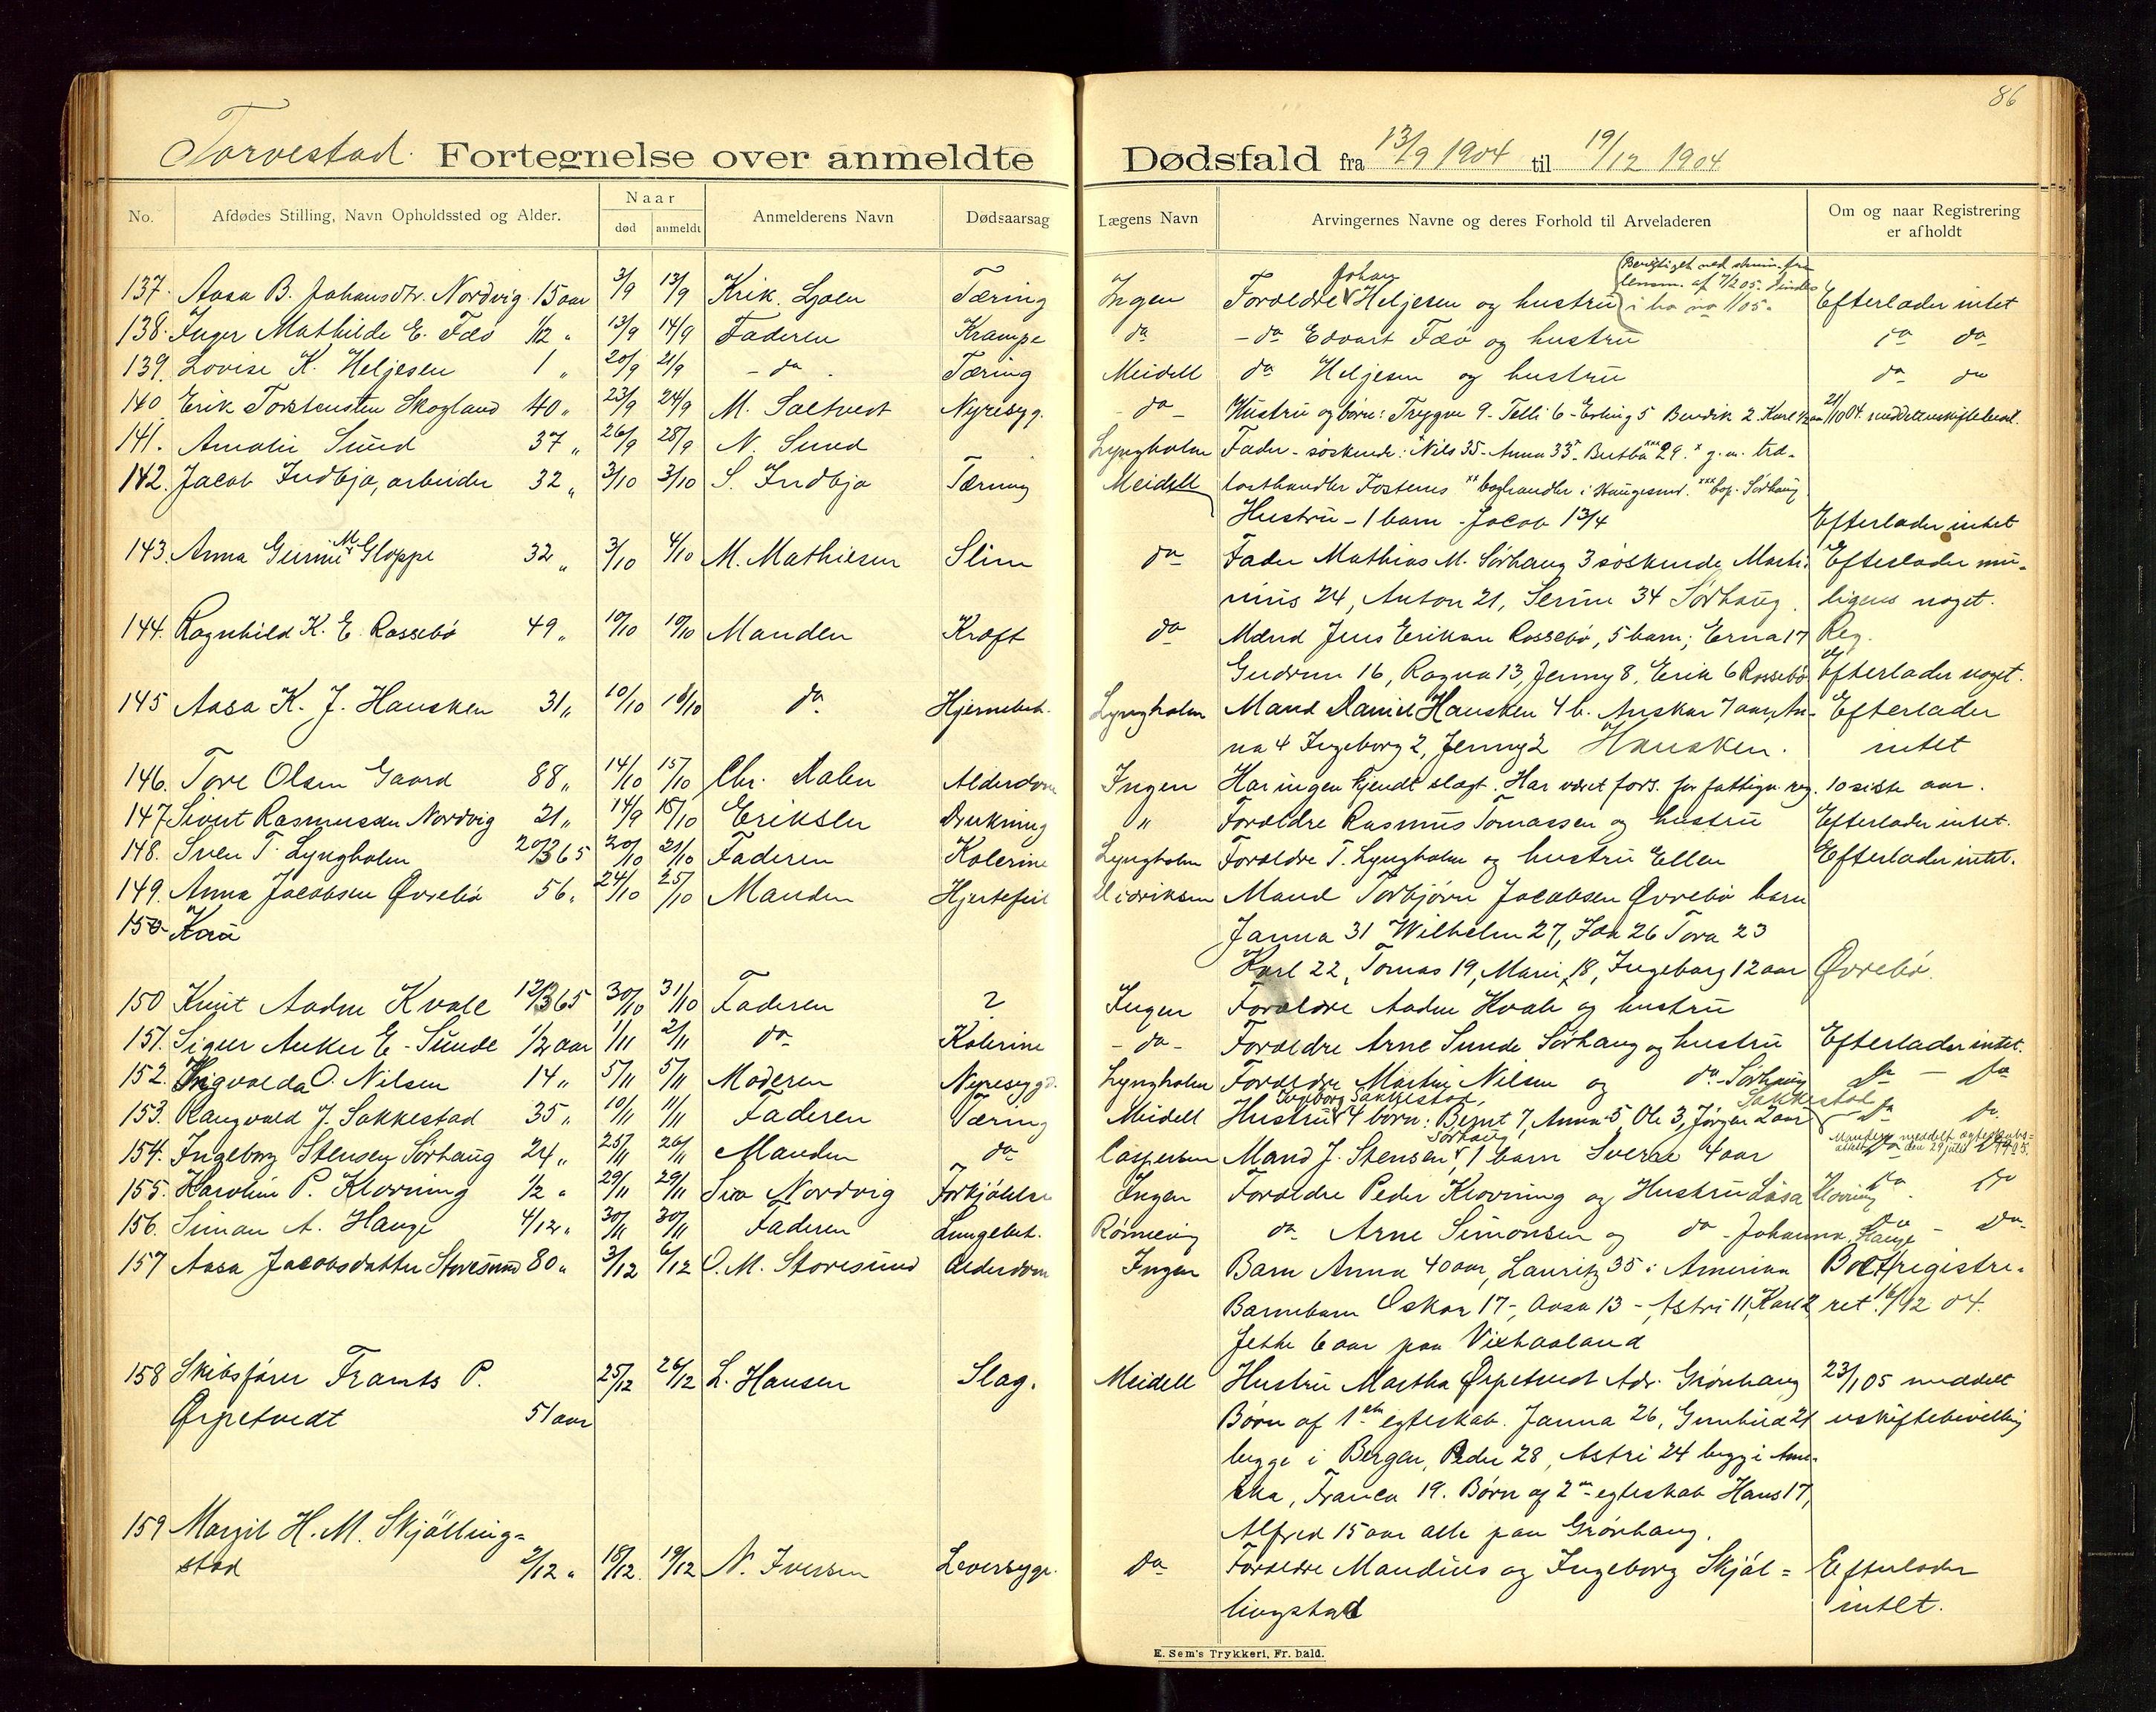 86
Torvestad. Fortegnelse over anmeldte Dødsfald fra 13/9 1904 til 19/12 1904
No. Afdødes Stilling, Navn Opholdssted og Alder. Naar død anmeldt Anmelderens Navn Dødsaarsag Lægens Navn Arvingernes Navne og deres Forhold til Arveladeren Om og naar Registrering er afholdt
137. Aasa B. Johansdtr. Nordvig 15 aar 3/9 13/9 Krik. Tæring Ingen Forældre Johan Heljesen og hustru Efterlader intet
138. Inger Mathilde E. Fæø 1/12 " 13/9 14/9 Faderen Krampe do - do Edvart Fæø og hustru do do
139. Lovise K. Heljesen 1 " 20/9 21/9 - do - Tæring Meidell do Heljesen og hustru do do
140 Erik Torstensen Skogland 40 " 23/9 24/9 M. Saltvedt Nyresyg. - do - Hustru og børn: Trygve 9 - Telli 6 - Erling 5 Bendik 2 Karl 1/2 aar 21/10 04 meddelt uskiftebevil.
141. Amalie Sund 37 " 26/9 28/9 N. Sund Lyngholm Fader - søskende: Nils 35 - Anna 33 - Bertha 29. x g. m. tra-
142. Jacob Indbjo, arbeider 32 " 3/10 3/10 S. Indbjo Tæring Meidell lasthandler Fosterus xx boghandler i Haugesund. xxx bop. Sørhaug
Hustru - 1 barn - Jacob 1 3/4 Efterlader intet
143. Anna Gurine M. Gloppe 32 " 3/10 4/10 M. Mathiesen Slim do Fader Mathias M. Sørhaug 3 søskende Marti- Efterlader mu-
nius 24, Anton 21, Serine 34 Sørhaug. ligens noget.
144. Ragnhild K. E. Rossebø 49 " 10/10 10/10 Manden Kræft do Mand Jens Eriksen Rossebø, 5 barn; Erna 17 Reg.
Gudrun 16, Ragna 13, Jenny 8, Erik 6 Rossebø. Efterlader noget.
145 Aasa K. J. Hausken 31 " 10/10 10/10 do Hjernebet. Lyngholm Mand Daniel Hausken 4 b. Anskar 7 aar, An- Efterlader
na 4 Ingeborg 2, Jenny 2 Hausken. intet
146. Tore Olsen Gaard 88 " 14/10 15/10 Chr. Dalen Alderdom Ingen Har ingen kjendt slægt. Har været fors. for fattigv. reg. 10 siste aar.
147 Sivert Rasmussen Nordvig 21 " 14/9 15/10 Eriksen Drukning " Forældre Rasmus Tomassen og hustru Efterlader intet.
148. Sven T. Lyngholm 20/365 20/10 21/10 Faderen Kolerine Lyngholm Forældre T. Lyngholm og hustru Ellen Efterlader intet.
149. Anna Jacobsen Øvrebø 56 " 24/10 25/10 Manden Hjertefeil Didriksen Mand Torbjørn Jacobsen Øvrebø barn
150 Janna 31 Wilhelm 27, Ida 26 Tora 23
Karl 22, Tomas 19, Marie 18, Ingeborg 12 aar Øvrebø.
150 Knut Aadne Kvale 12/365 30/10 31/10 Faderen ? Ingen Forældre Aadne Kvale og hustru
151. Sigur Anker E. Sunde 1/2 aar 1/11 2/11 do Kolerine - do - Forældre Arne Sunde Sørhaug og hustru Efterlader intet.
152. Ingvalda O. Nilsen 14 " 5/11 5/11 Moderen Nyresygd. Lyngholm Forældre Martin Nilsen og do - Sørhaug do - do
153. Rangvald J. Sakkestad 35 " 10/11 11/11 Faderen Tæring Meidell Hustru Ingeborg Sakkestad, 4 børn: Bernt 7, Anna 5, Ole 3, Jørgen 2 aar Sakkestad do do
154. Ingeborg Stensen Sørhaug 24 " 25/11 26/11 Manden do Caspersen Mand J. Stensen Sørhaug, 1 barn Sverre 4 aar Manden meddelt egteskabs-attest den 29 juli 1905.
155. Karoline P. Klovning 1/2 " 29/11 29/11 Siv Nordvig Forkjølelse Ingen Forældre Peder Klovning og Hustru Lisa Klovning do do
156. Simon A. Hauge 4/12 " 30/11 30/11 Faderen Lungebet. Rømcing do Arne Simonsen og do - Johanna Hauge do - do
157 Aasa Jacobsdatter Storesund 80 " 3/12 6/12 O. M. Storesund Alderdom Ingen Barn Anna 40 aar, Lauritz 35 i Amerika Boet registre-
Barnebarn Oskar 17 - Aasa 13 - Astri 11, Karl 2, ret 16/12 04.
Jethe 6 aar paa Vikhaaland
158 Skibsfører Frants P. 25/12 26/12 L. Hansen Slag. Meidell Hustru Martha Ørpetvedt Adr. Grønhaug 23/1 05 meddelt
Ørpetvedt 51 aar Børn af 1ste egteskab. Janna 26, Gunhild 21 uskiftebevilling
begge i Bergen, Peder 28, Astri 24 begge i Ame-
rika, Franca 19. Børn af 2n egteskab Hans 17,
159 Margit H. M. Skjølling- Alfred 15 aar alle paa Grønhaug.
stad 2/12 " 18/12 19/12 N. Iversen Leversyge. do Forældre Mandius og Ingeborg Skjøl- Efterlader
lingstad intet.
E. Sem's Trykkeri, Fr. hald.